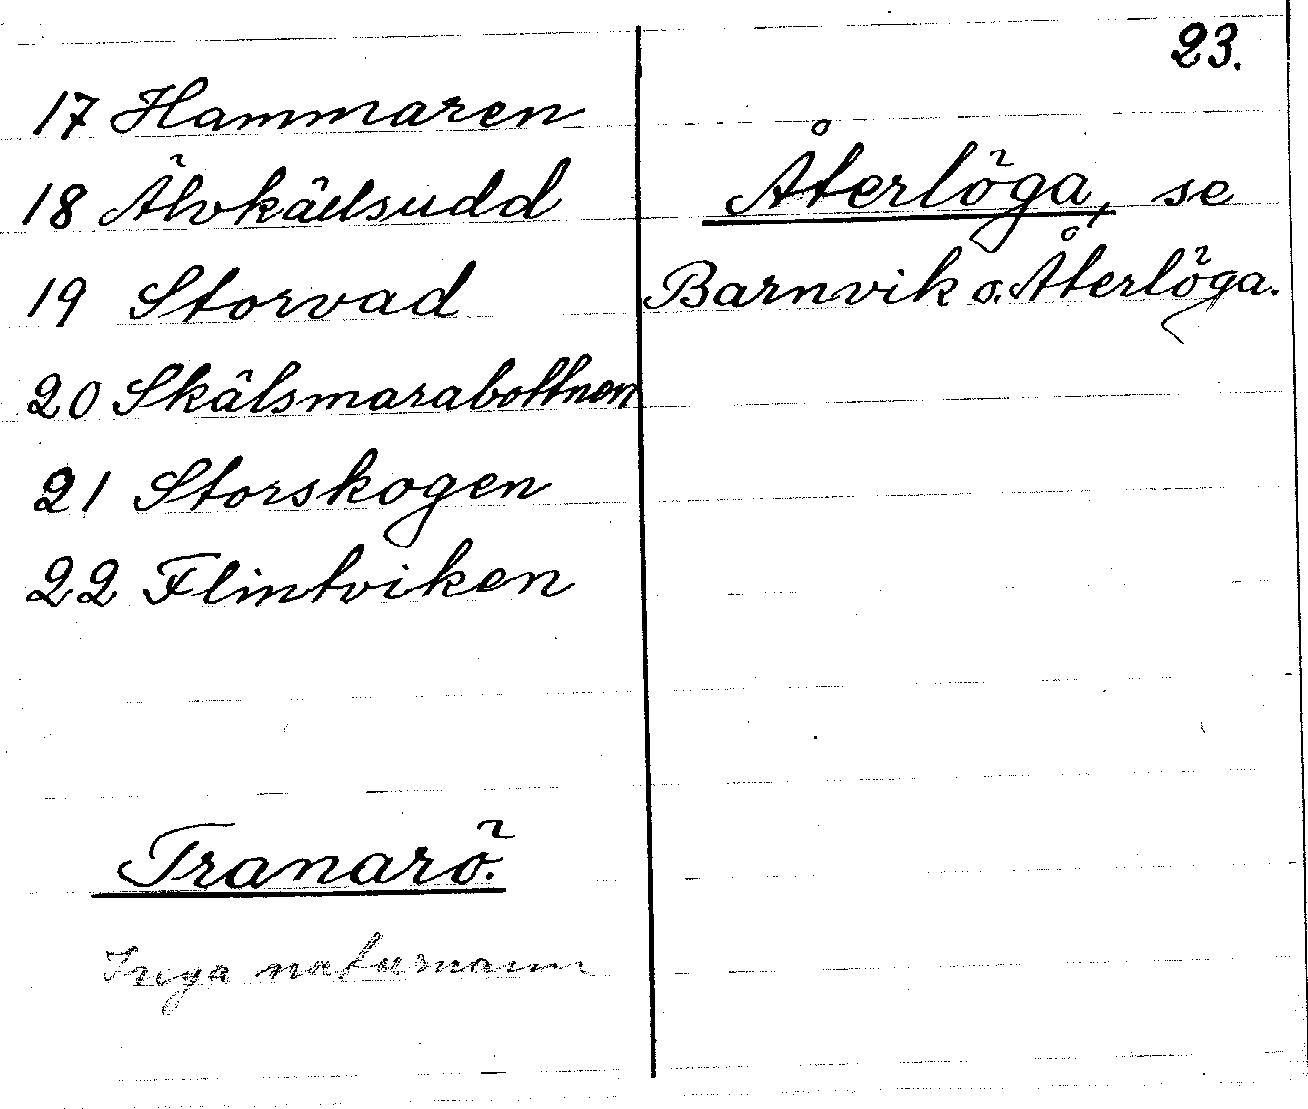 23.
17 Hammaren
18 Älvkällsudd
19 Storvad
20 Skälsmarabottnen
21 Storskogen
22 Flintviken
Tranarö.
Inga naturnamn
Återlöga, se
Barnvik o. Återlöga.